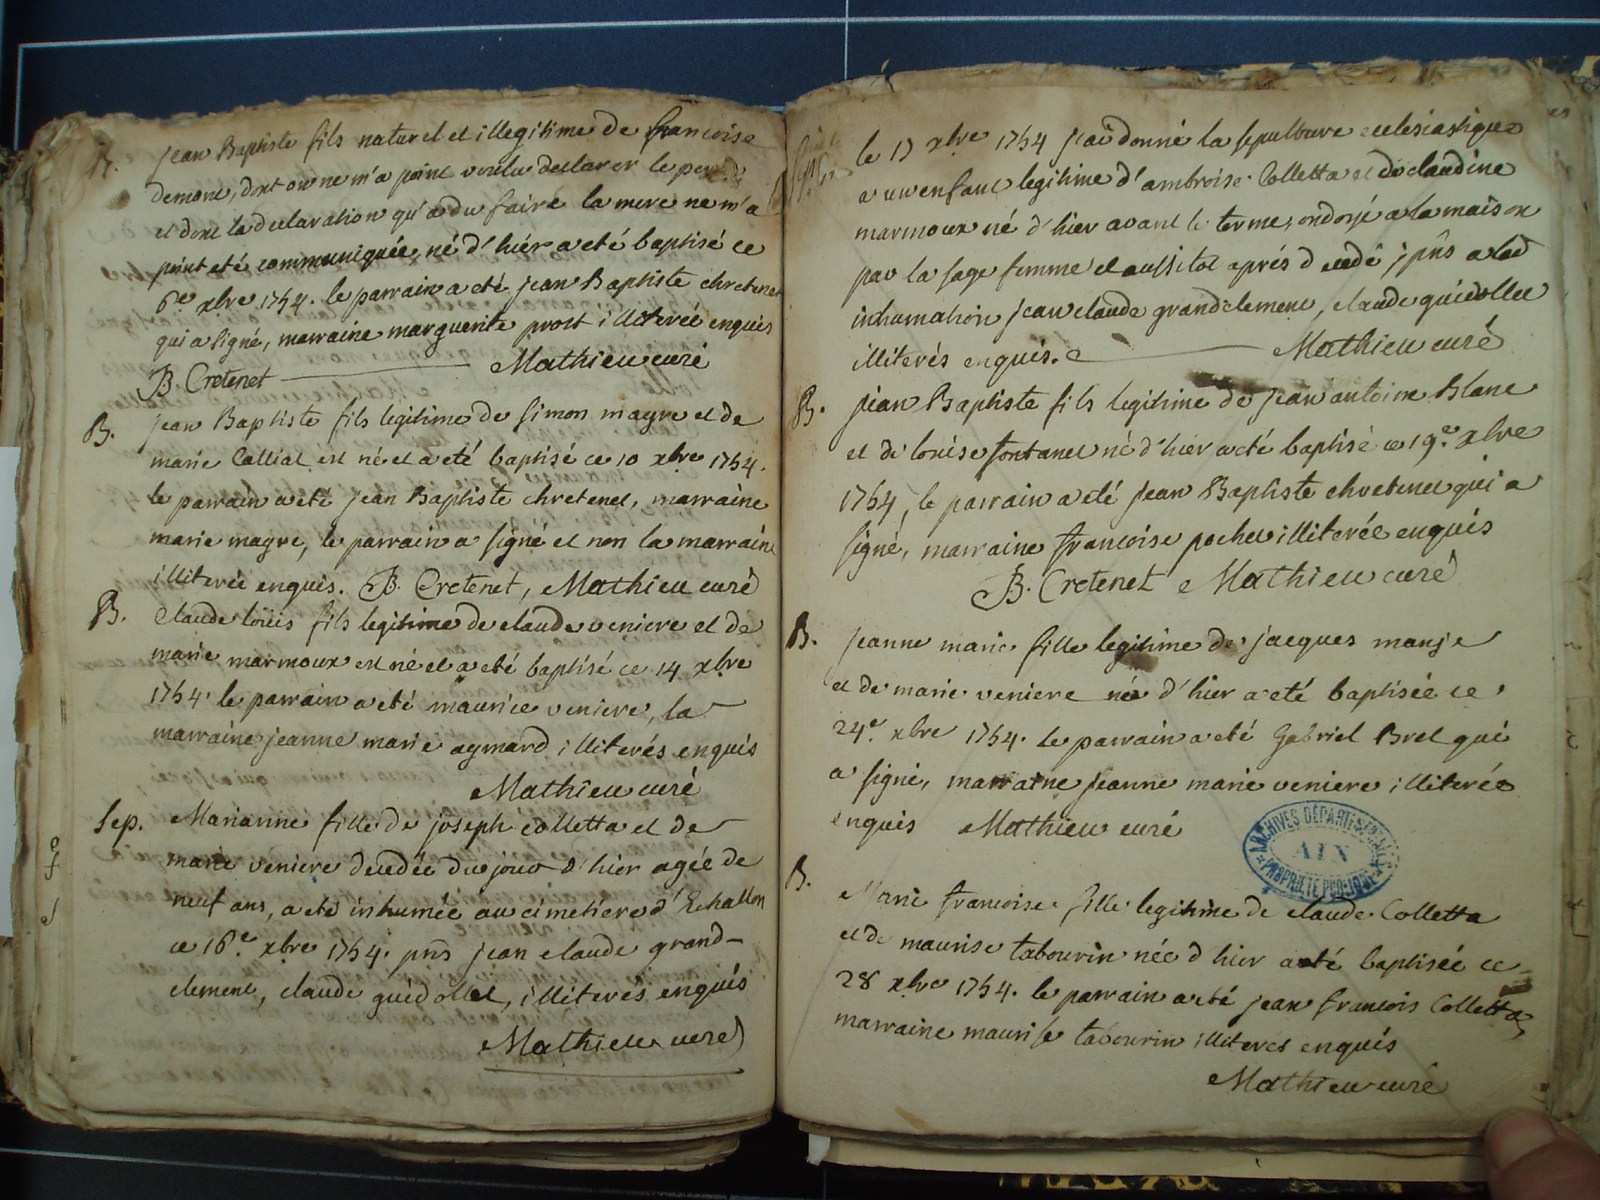 B.
jean Baptiste fils naturel et illegitime de francoise
demont, dont on ne m'a point voulu declarer le pere
et dont la declaration qu'a du faire la mere ne m'a
point eté communiquée, né d'hier a eté baptisé ce
6e xbre 1754. le parrain a eté jean Baptiste chretenet
qui a signé, marraine marguerite prost illiterée enquis
B. Cretenet Mathieu curé
B.
jean Baptiste fils legitime de simon magre et de
marie Calliat est né et a eté baptisé ce 10 xbre 1754.
le parrain a eté jean Baptiste chretenet, marraine
marie magre, le parrain a signé et non la marraine
illiterée enquis. B. Cretenet, Mathieu curé
B.
Claude loüis fils legitime de claude veniere et de
marie marmoux est né et a eté baptisé ce 14 xbre
1754. le parrain a eté maurice veniere, la
marraine jeanne marie aymard illiterés enquis
Mathieu curé
Sep.
Marianne fille de joseph colletta et de
marie veniere decedée du jour d'hier agée de
neuf ans, a eté inhumée au cimetiere d'Echallon
ce 16e xbre 1754. pns jean claude grand-
clement, claude guedollet, illiterés enquis
Mathieu curé
le 17 xbre 1754 j'ai donné la sepulture eclesiastique
a un enfant legitime d'ambroise Colletta et de claudine
marmoux né d'hier avant le terme, ondoyé a la maison
par la sage femme et aussitot aprés decedé, pns a lad
inhumation jean claude grandclement, claude guedollet
illiterés enquis. Mathieu curé
B.
jean Baptiste fils legitime de jean antoine Blanc
et de loüise fontanet né d'hier a eté baptisé ce 19e xbre
1754, le parrain a eté jean Baptiste chretenet qui a
signé, marraine francoise pochet illiterée enquis
B. Cretenet Mathieu curé
B.
jeanne marie fille legitime de jacques manje
et de marie veniere née d'hier a eté baptisée ce
24e xbre 1754. le parrain a eté Gabriel Brel qui
a signé, marraine jeanne marie veniere illiterée
enquis Mathieu curé
ARCHIVES DÉPARTEMENTALES
AIN
PROPRIÉTÉ PUBLIQUE
B.
Marie francoise fille legitime de claude Colletta
et de maurise tabourin née d'hier a eté baptisée ce
28 xbre 1754. le parrain a eté jean francois Colletta,
marraine maurise tabourin illiteres enquis
Mathieu curé